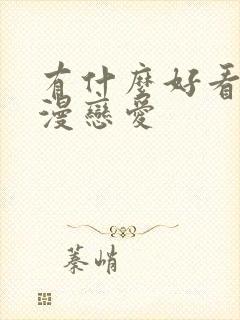 有什麼好看
漫戀愛
蓁峭